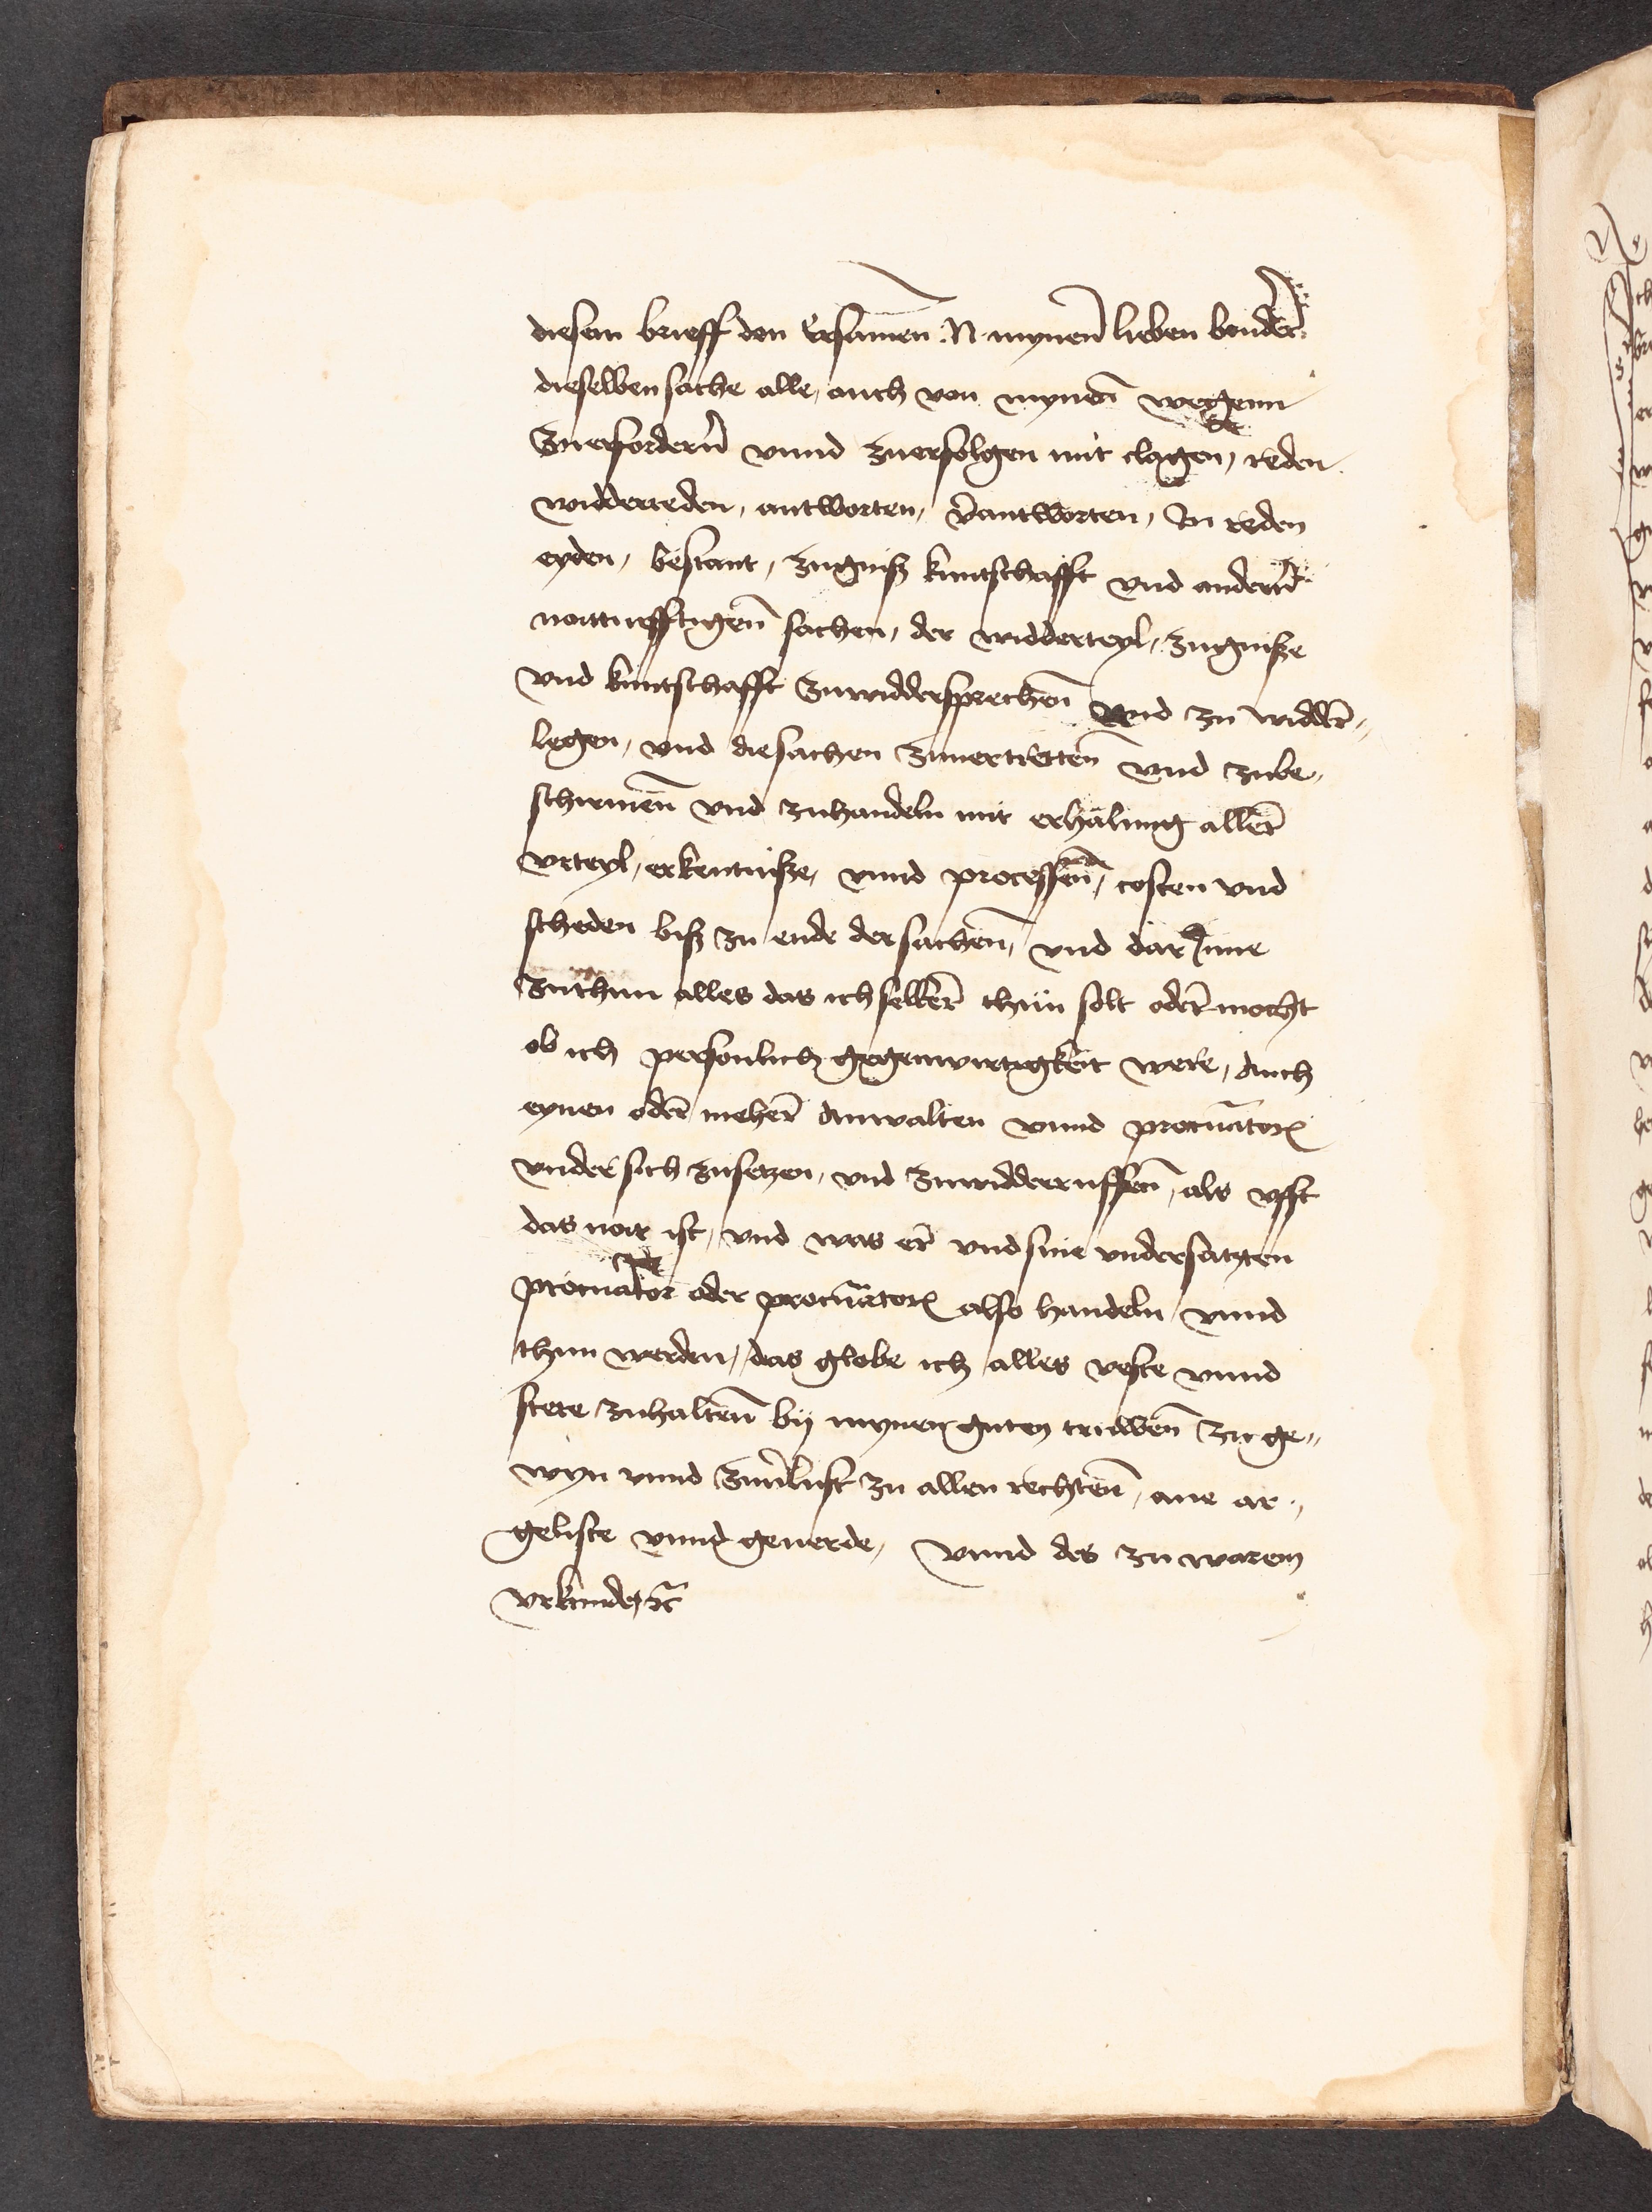 diesem brieff den Ersamen N mynen lieben bruder
dieselben sache alle, auch von mynen wegenn
Zuerfordern vnnd zuerfolgen mit clagen, reden
widderreden, antworten, verantworten, In reden
eyden, bestant, zugniß kuntschafft vnd andern
notturfftigen sachen, der widderteyl, zugniße
vnd kuntschafft zuwiddersprechen vnd zu widder„
legen, vnd die sachen zuuertretten vnd zube„
schirmen vnd zuhandeln mit erhalung aller
vrteyl, erkentniße, vnnd processen, costen vnd
scheden biß zu ende der sachen, vnd dar Inne
zuthun alles das ich selber thün solt oder mocht
ob ich personlich gegenwirtigkeit were, Auch
eynen oder meher Anwalten vnnd procurator
vnder sich zusetzen, vnd zuwidderruffen, als offt
das noit ist, vnd was er vnd sine vndersatzten
procurator oder procurator also handeln vnnd
thun werden, das globe ich alles veste vnnd
stete zuhalten by mynen guten truwen zu ge„
wyn vnnd zuuerlust zu allen rechten, ane ar„
geliste vnnd geuerde, Vnnd des zu warem
vrkunde, etc